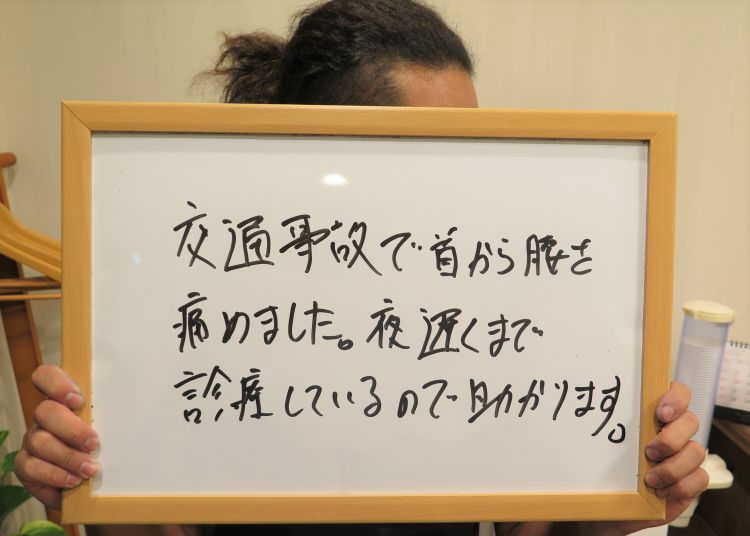 交通事故で首から腰を
痛めました。夜遅くまで
診療しているので助かります。